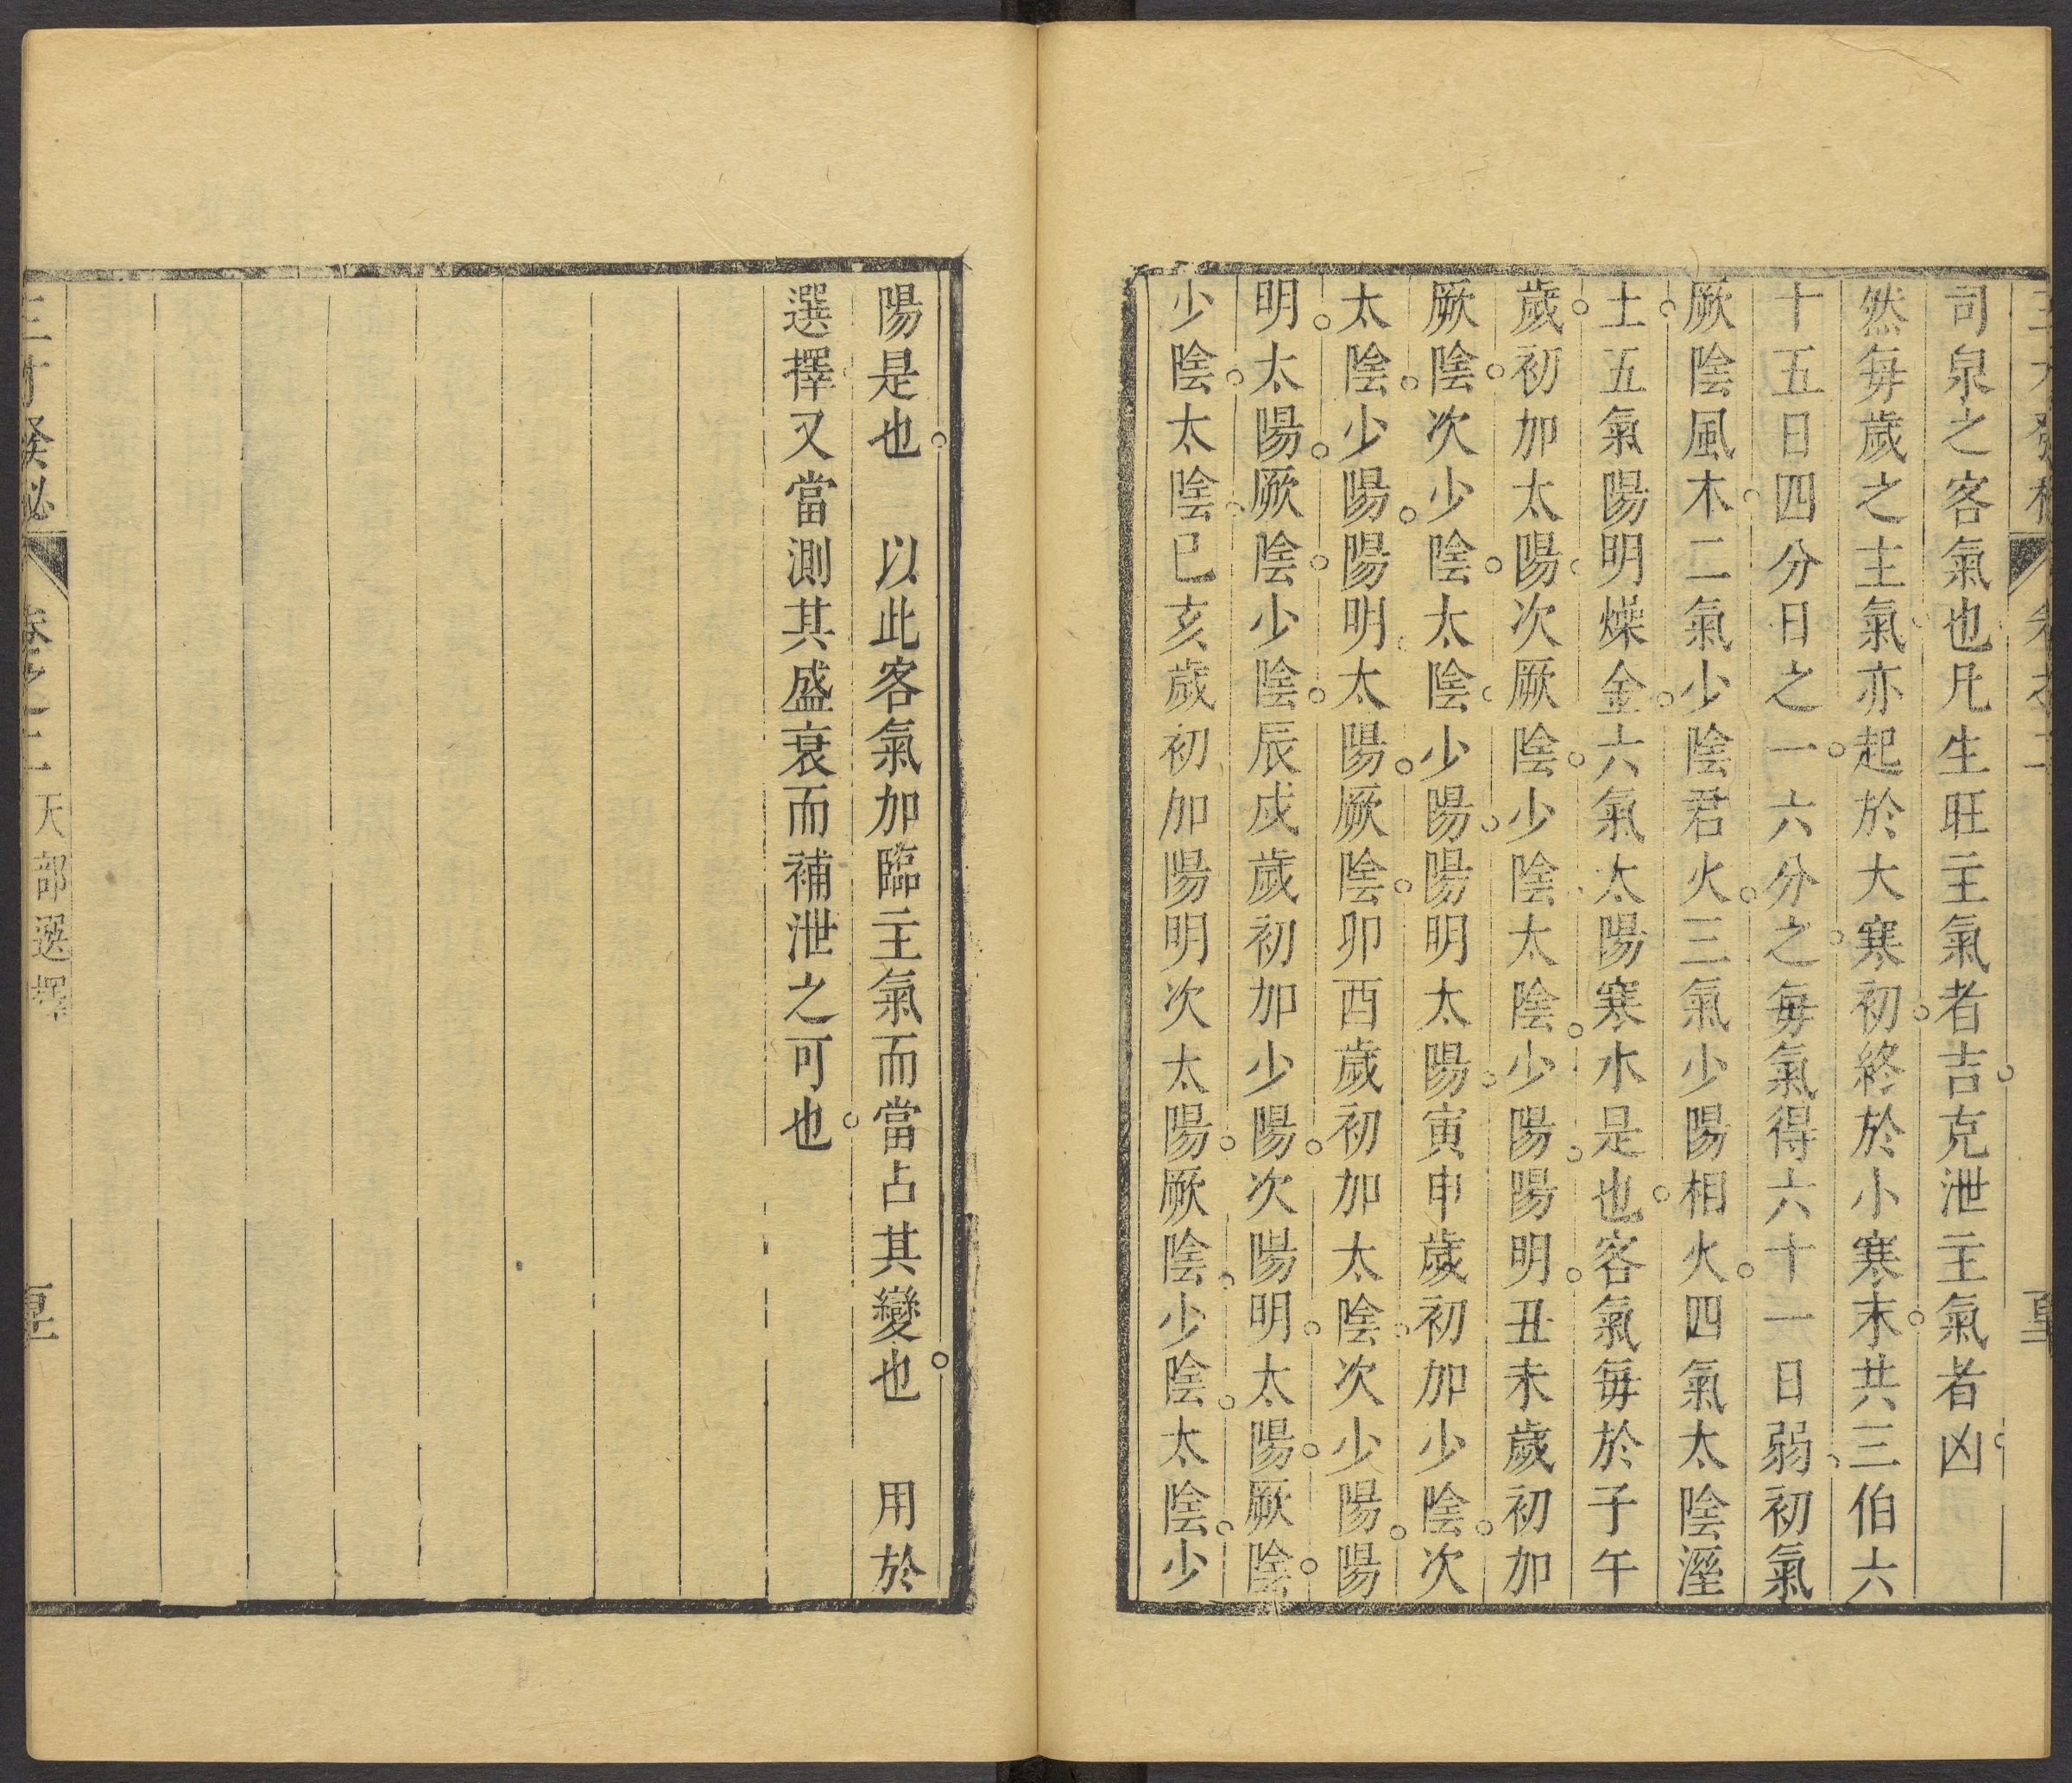 司泉之客氣也凡生旺主氣者吉克泄主氣者凶
然每歲之主氣亦起於大寒初終於小寒末共三伯六
十五日四分日之一六分之每氣得六十一日弱初氣
厥陰風木二氣少陰君火三氣少陽相火四氣太陰溼
土五氣陽明燥金六氣太陽寒水是也客氣每於子午
歲初加太陽次厥陰少陰太陰少陽陽明丑未歲初加
厥陰次少陰太陰少陽陽明太陽寅申歲初加少陰次
太陰少陽陽明太陽厥陰卯酉歲初加太陰次少陽陽
明太陽厥陰少陰辰戌歲初加少陽次陽明太陽厥陰
少陰太陰巳亥歲初加陽明次太陽厥陰少陰太陰少
陽是也　以此客氣加臨主氣而當占其變也　用於
選擇又當測其盛衰而補泄之可也
三才發秘
卷之二
天部選擇